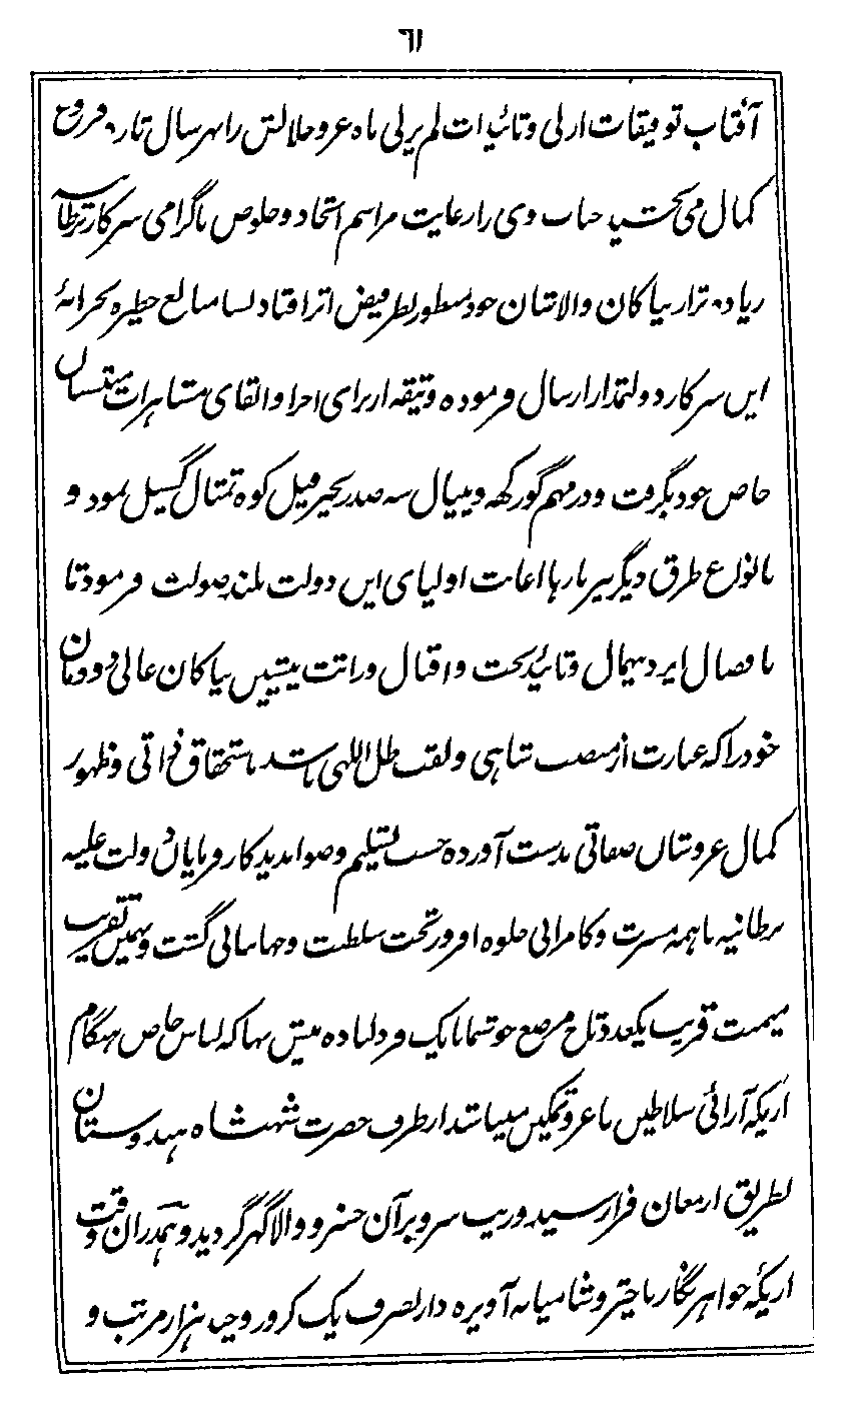 ٦١
آفتاب توفیقات ازلی و تائیدات لم یزلی ماه عز و جلالش را بهر سال تازه فروغ
کمال می بخشید جناب وی را رعایت مراسم اتحاد و خلوص با گرامی سرکار برطانیه
زیاده تر از نیاکان والاشان خود منظور نظر فیض اثر افتاد
این سرکار دولتمدار ارسال فرموده وثیقه از برای اجرا و ابقای مشاهرات
خاص خود بگرفت و در مهم گورکهه و نیپال سه صد زنجیر فیل کوه تمثال گسیل نمود و
بانواع طرق دیگر نیز بارها اعانت اولیای این دولت بلند صولت فرمود تا
با فضال ایزد بیهمال و تائید بخت و اقبال وراثت پیشین نیاکان عالی دودمان
خود را که عبارت از منصب شاهی و لقب ظل اللهی باشد باستحقاق ذاتی و ظهور
کمال عز و شان صفاتی بدست آورده حسب تسلیم و صوابدید کارفرمایان دولت علیه
برطانیه با همه مسرت و کامرانی جلوه افروز تخت سلطنت و جهانبانی گشت و بهمین تقریب
میمنت قریب یکعدد تاج مرصع خوشنما با یک فرد لباده بیش بها که لباس خاص هنگام
اریکه آرائی سلاطین با عز و تمکین میباشد از طرف حضرت شهنشاه هندوستان
بطریق ارمغان فرا رسید و زیب سر و بر آن خسرو والا گهر گردید و همدران وقت
اریکه جواهر نگار با چتر و شامیانه آویزه دار بصرف یک کرور و چند هزار مرتب و